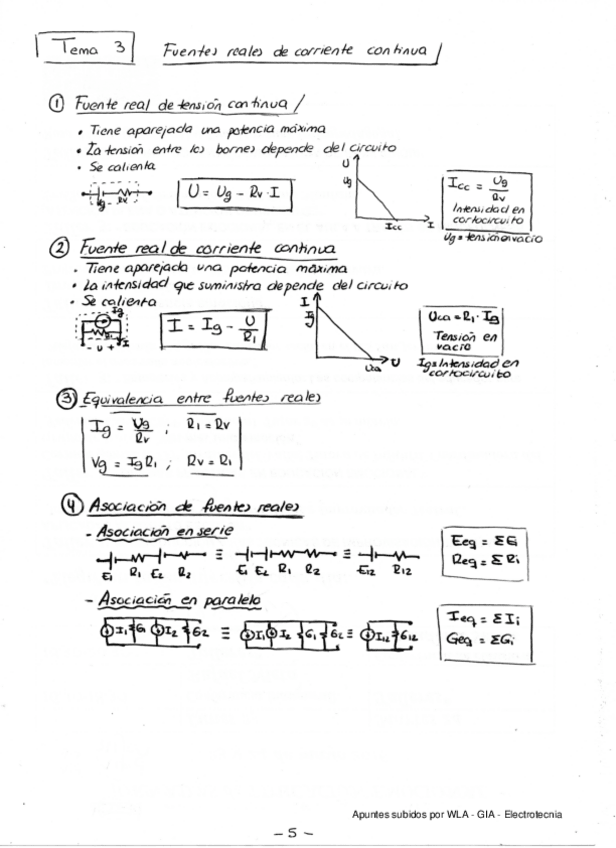 Tema 3 Fuentes reales de corriente continua
① Fuente real de tensión continua
• Tiene aparejada una potencia máxima
• La tensión entre los bornes depende del circuito
• Se calienta
Ug - Rv
U = Ug - Rv · I
U
Ug
Icc I
Icc = Ug/Rv
Intensidad en
cortocircuito
Ug = tensión en vacío
② Fuente real de corriente continua
• Tiene aparejada una potencia máxima
• La intensidad que suministra depende del circuito
• Se calienta
Ig
- U + I
I = Ig - U/RI
I
Ig
Uca U
Uca = RI · Ig
Tensión en
vacío
Ig = Intensidad en
cortocircuito
③ Equivalencia entre fuentes reales
Ig = Ug/Rv ; RI = Rv
Vg = Ig RI ; Rv = RI
④ Asociación de fuentes reales
- Asociación en serie
E1 R1 E2 R2 ≡ E1 E2 R1 R2 ≡ E12 R12
Eeq = ΣEi
Req = ΣRi
- Asociación en paralelo
I1 G1 I2 G2 ≡ I1 I2 G1 G2 ≡ I12 G12
Ieq = ΣIi
Geq = ΣGi
Apuntes subidos por WLA - GIA - Electrotecnia
- 5 -